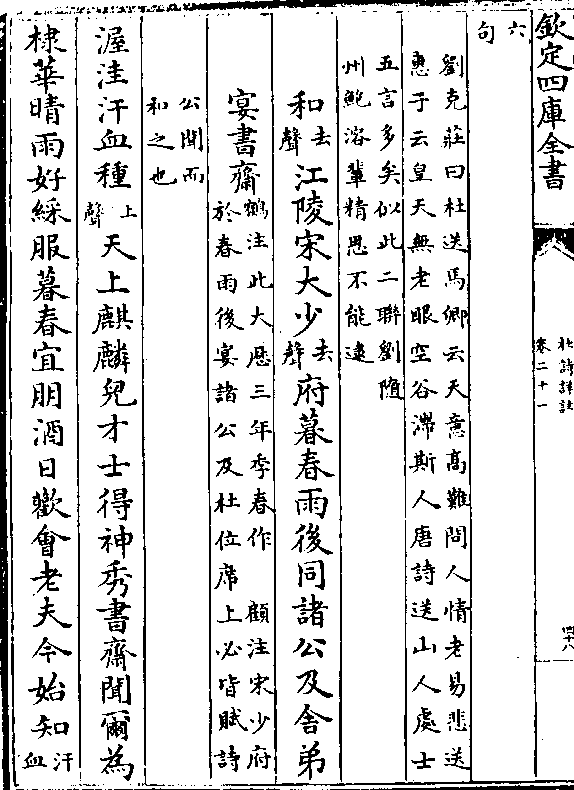 欽定四庫全書
杜詩詳註
卷二十一
四十八
六
句
劉克莊曰杜送馬卿云天意高難問人情老易悲送
惠子云皇天無老眼空谷滯斯人唐詩送山人處士
五言多矣似此二聯劉随
州鮑溶輩精思不能逮
和去聲江陵宋大少去聲府暮春雨後同諸公及舍弟
宴書齋鶴注此大厯三年季春作 顧注宋少府
於春雨後宴諸公及杜位席上必皆賦詩
公聞而
和之也
渥洼汗血種上聲天上麒麟兒才士得神秀書齋聞爾為
棣華晴雨好綵服暮春宜朋酒日歡會老夫今始知汗
血